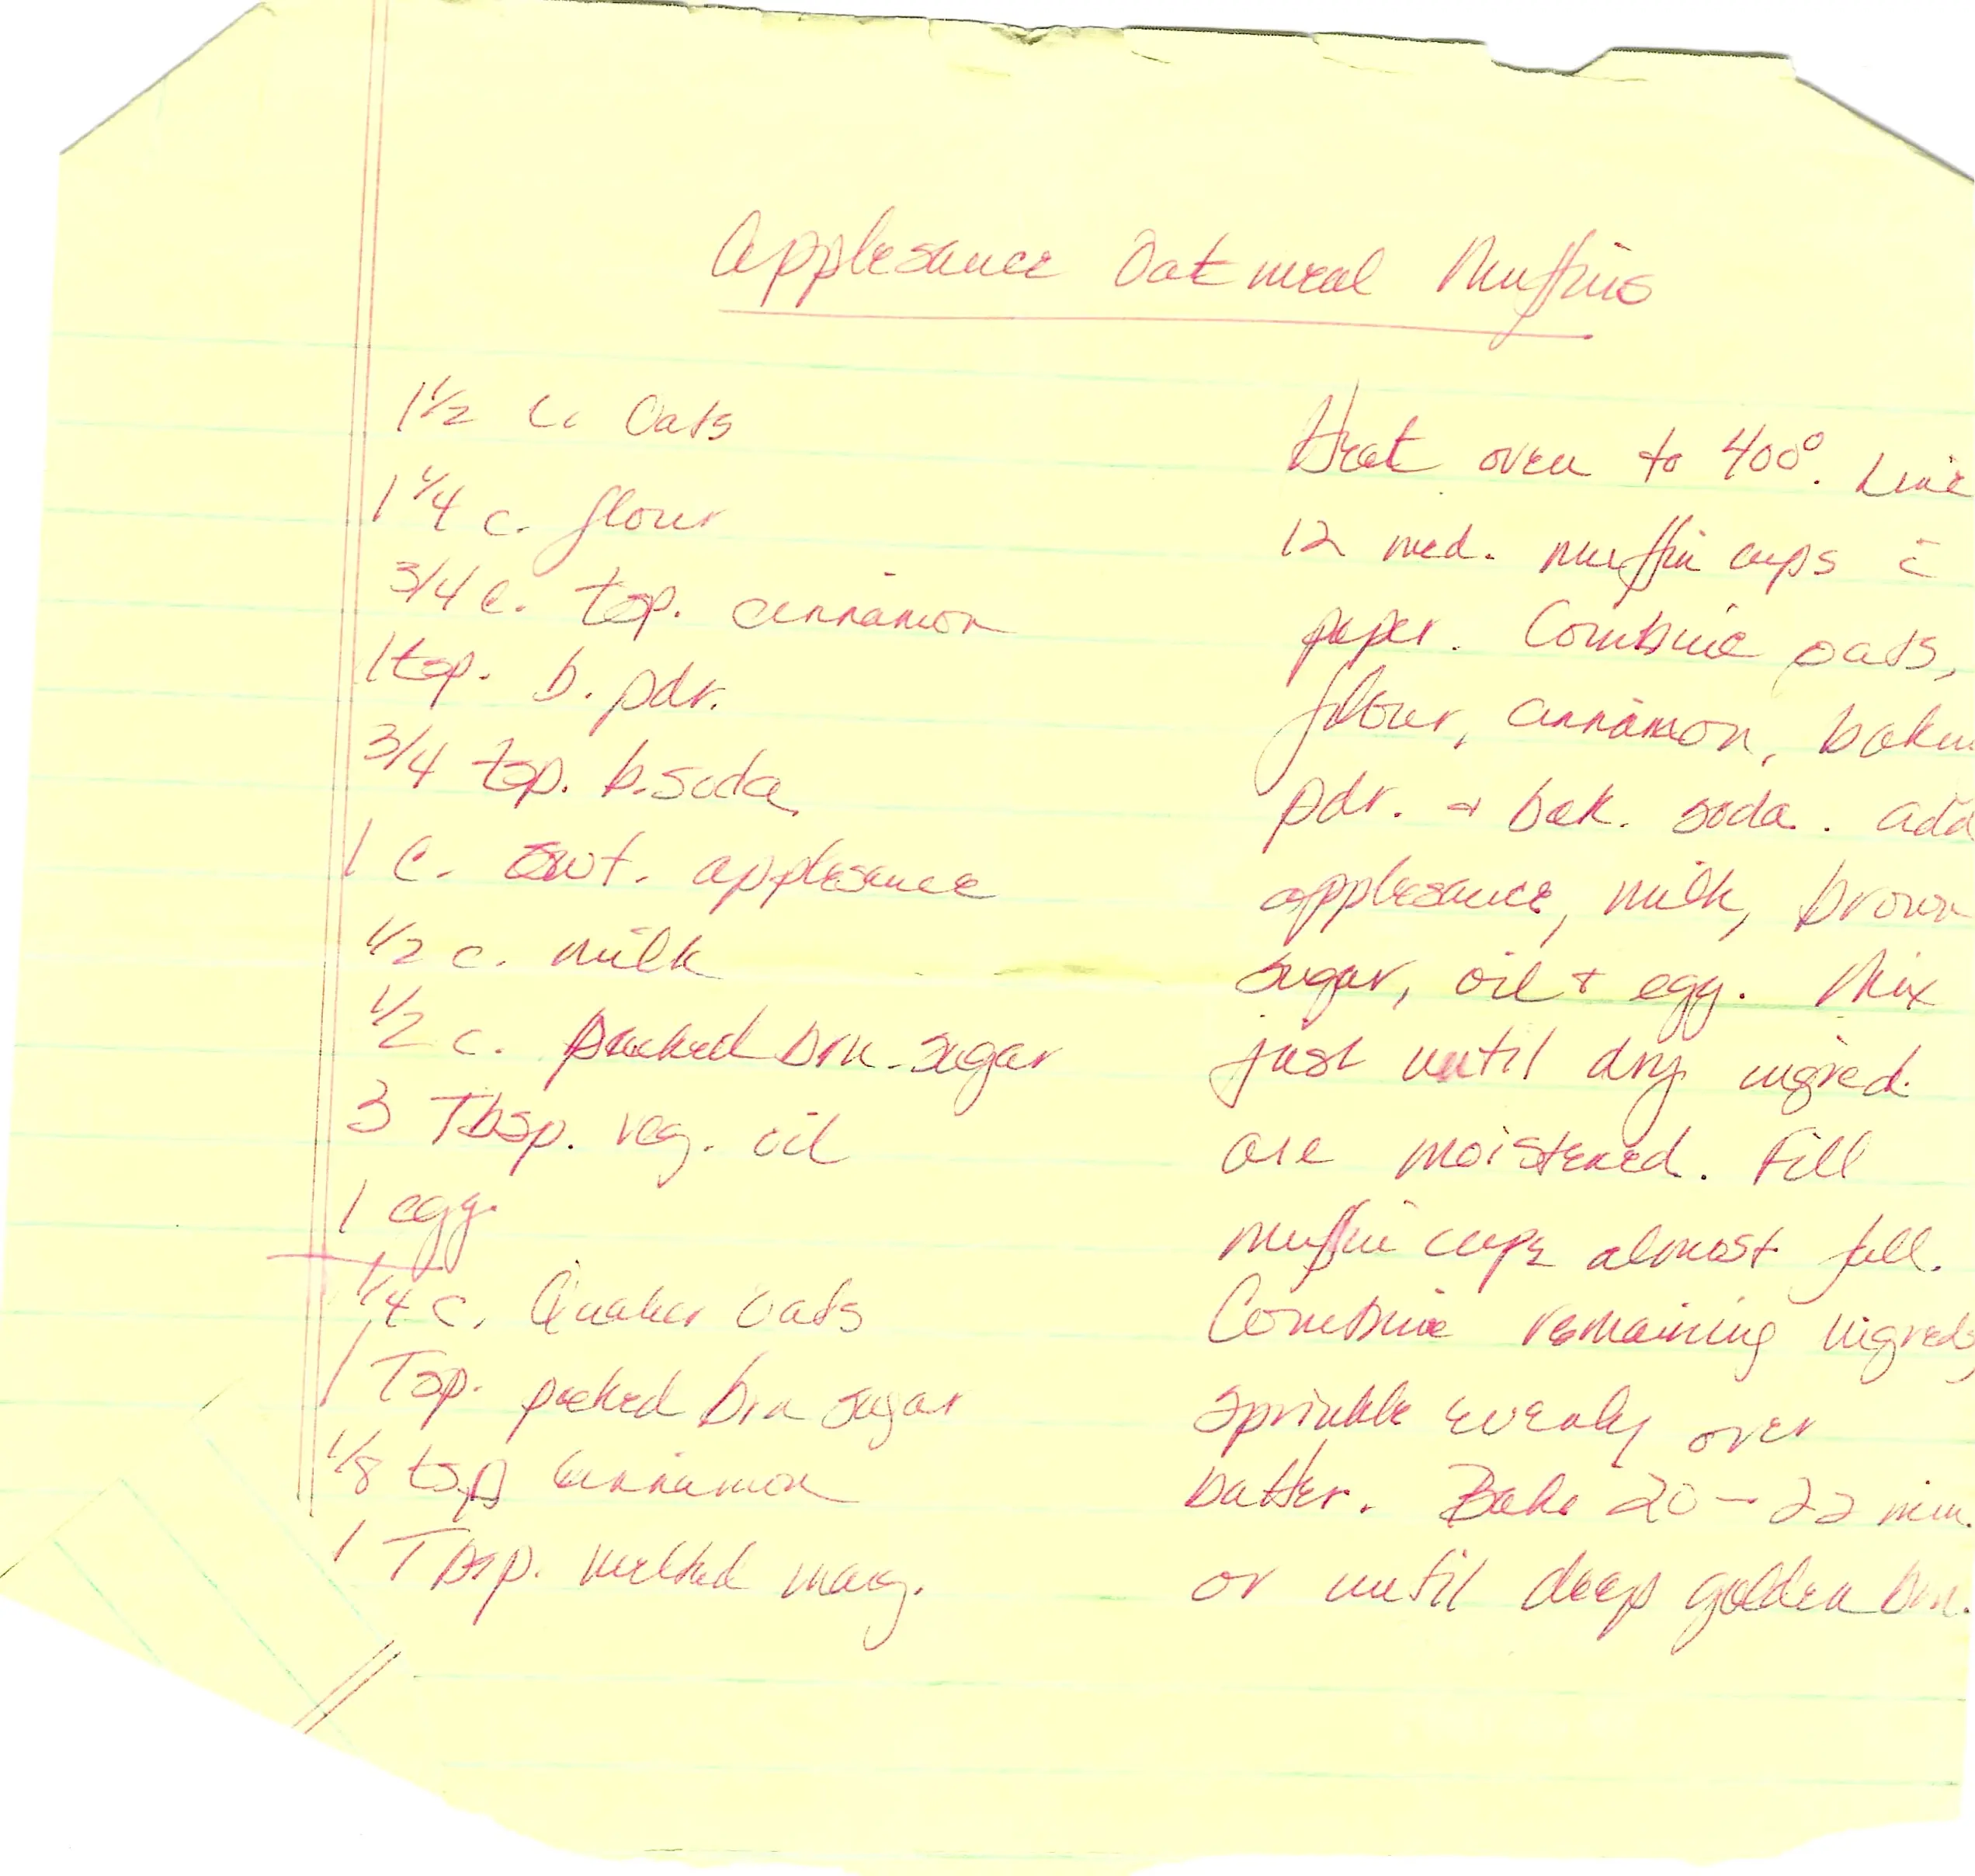 Applesauce Oatmeal Muffins
1 1/2 c. Oats
1 1/4 c. flour
3/4 c. tsp. cinnamon
1 tsp. b. pdr.
3/4 tsp. b. soda
1 c. swt. applesauce
1/2 c. milk
1/2 c. packed brn. sugar
3 Tbsp. veg. oil
1 egg.
1/4 c. Quaker Oats
1 Tsp. packed brn sugar
1/8 tsp cinnamon
1 Tbsp. melted marg.
Heat oven to 400°. Line
12 med. muffin cups c̄
paper. Combine oats,
flour, cinnamon, bakin
pdr. + bak. soda. add
applesauce, milk, brown
sugar, oil + egg. Mix
just until dry ingred.
are moistened. Fill
muffin cups almost full.
Combine remaining ingreds,
sprinkle evenly over
batter. Bake 20-22 min.
or until deep golden brn.